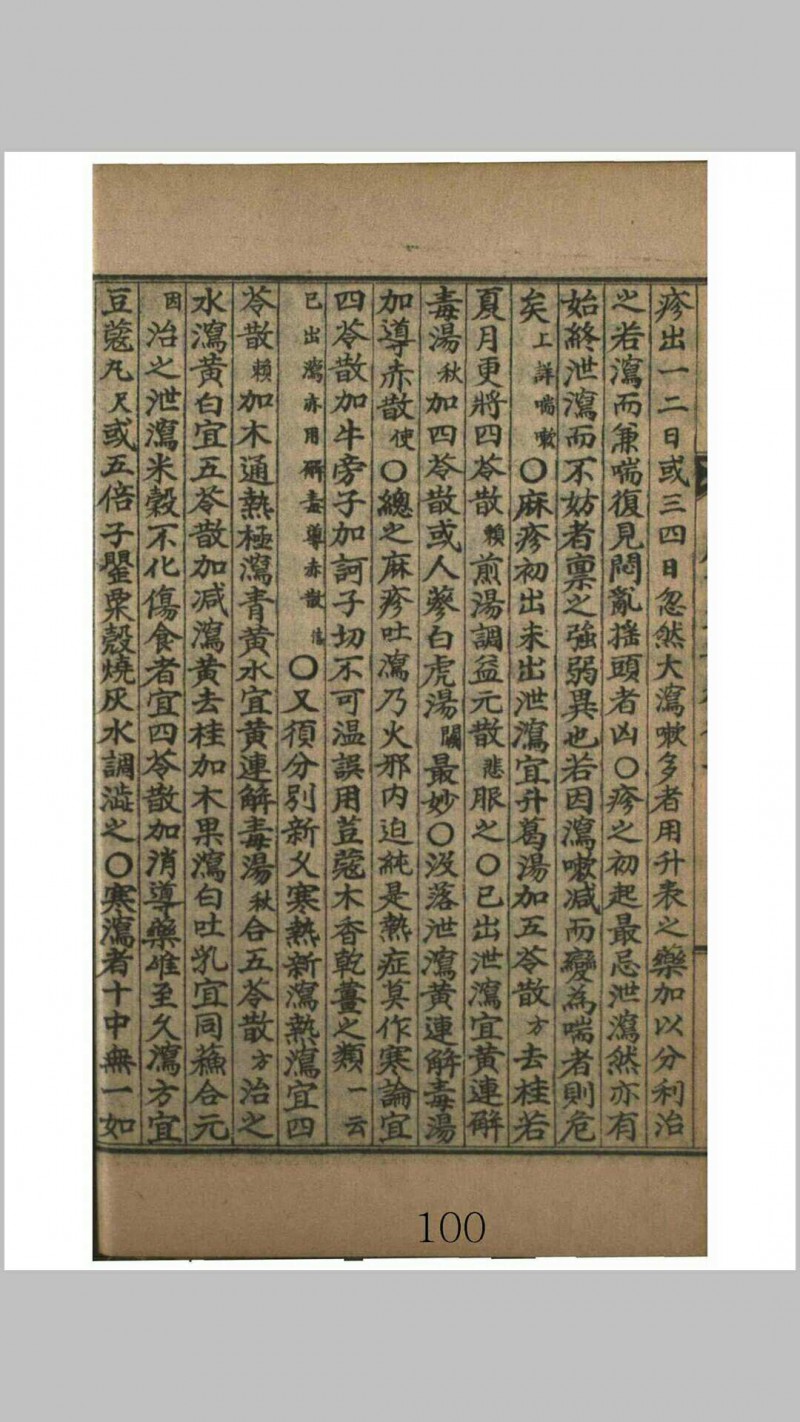 疹出一二日或三四日忽然大瀉嗽多者用升表之藥加以分利治
之若瀉而兼喘復見悶亂搖頭者凶○疹之初起最忌泄瀉然亦有
始終泄瀉而不妨者禀之強弱異也若因瀉嗽减而變為喘者則危
矣上詳喘嗽○麻疹初出未出泄瀉宜升葛湯加五苓散方去桂若
夏月更將四苓散賴煎湯調益元散悲服之○已出泄瀉宜黄連觧
毒湯秋加四苓散或人蔘白虎湯闕最妙○没落泄瀉黄連觧毒湯
加導赤散使○總之麻疹吐瀉乃火邪内迫純是熱症莫作寒論宜
四苓散加牛旁子加訶子切不可温誤用荳蔻木香乾薑之類一云
已出瀉亦用觧毒導赤散○又須分别新久寒熱新瀉熱瀉宜四
苓散賴加木通熱極瀉青黄水宜黄連觧毒湯秋合五苓散方治之
水瀉黄白宜五苓散加减瀉黄去桂加木果瀉白吐乳宜同蘓合元
因治之泄瀉米穀不化傷食者宜四苓散加消導藥唯至久瀉方宜
豆蔻丸尺或五倍子罌粟殼燒灰水調澁之○寒瀉者十中無一如
100